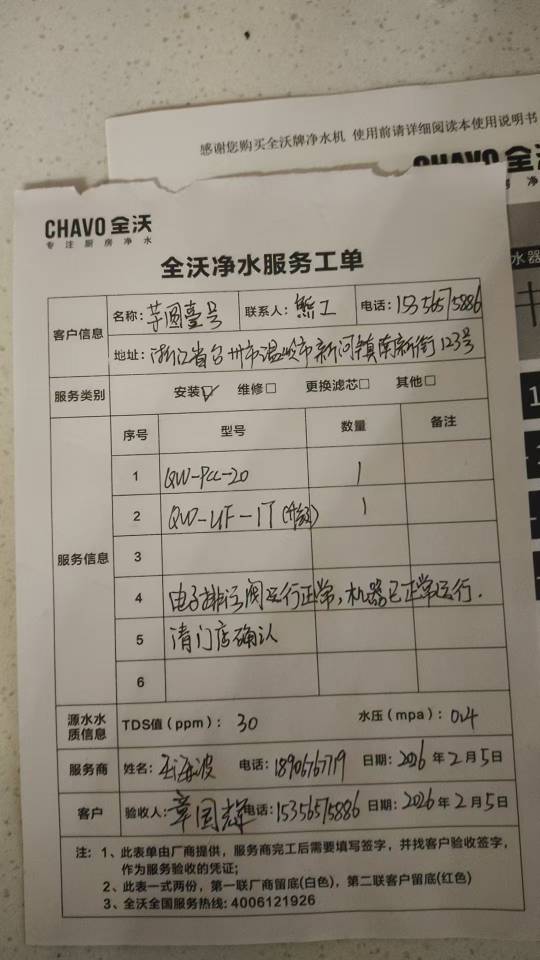 感谢您购买全沃牌净水机 使用前请详细阅读本使用说明书
CHAVO 全沃
CHAVO 全沃
专注厨房净水
全沃净水服务工单
客户信息 名称：芋圆壹号 联系人：熊工 电话：15356575886
地址：浙江省台州市温岭市新河镇南新街123号
服务类别 安装☑ 维修□ 更换滤芯□ 其他□
服务信息 序号 型号 数量 备注
1 QW-PCC-20 1
2 QW-UF-1T 1
3
4 电子排污阀运行正常，机器已正常运行.
5 请门店确认
6
源水水质信息 TDS值（ppm）： 30 水压（mpa）： 0.4
服务商 姓名： 海波 电话：18906767719 日期：2026年2月5日
客户 验收人：章国辉 电话：15356575886 日期：2026年2月5日
注：1、此表单由厂商提供，服务商完工后需要填写签字，并找客户验收签字，
作为服务验收的凭证；
2、此表一式两份，第一联厂商留底(白色)，第二联客户留底(红色)
3、全沃全国服务热线: 4006121926